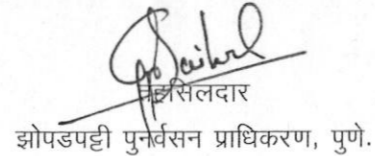 तहसिलदार
झोपडपट्टी पुनर्वसन प्राधिकरण, पुणे.